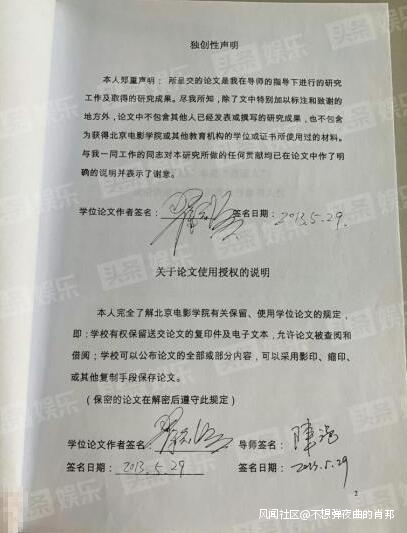 独创性声明
本人郑重声明：所呈交的论文是我在导师的指导下进行的研究
工作及取得的研究成果。尽我所知，除了文中特别加以标注和致谢的
地方外，论文中不包含其他人已经发表或撰写的研究成果，也不包含
为获得北京电影学院或其他教育机构的学位或证书所使用过的材料。
与我一同工作的同志对本研究所做的任何贡献均已在论文中作了明
确的说明并表示了谢意。
学位论文作者签名： 签名日期：2013.5.29.
关于论文使用授权的说明
本人完全了解北京电影学院有关保留、使用学位论文的规定，
即：学校有权保留送交论文的复印件及电子文本，允许论文被查阅和
借阅；学校可以公布论文的全部或部分内容，可以采用影印、缩印、
或其他复制手段保存论文。
（保密的论文在解密后遵守此规定）
学位论文作者签名： 导师签名：
签名日期：2013.5.29 签名日期：2013.5.29
2
头条娱乐
风闻社区@不想弹夜曲的肖邦